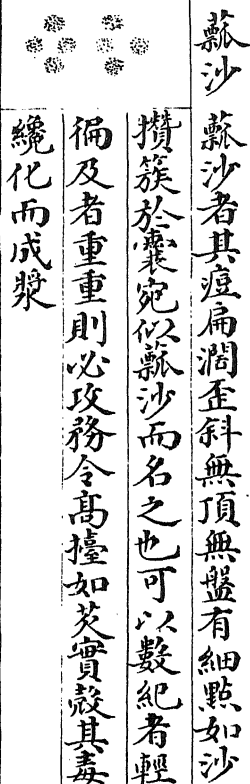 蓏沙
蓏沙者其痘扁濶歪斜無頂無盤有細點如沙
攢簇於囊宛似蓏沙而名之也可以數紀者輕
徧及者重重則必攻務令高擡如芡實殼其毒
纔化而成漿